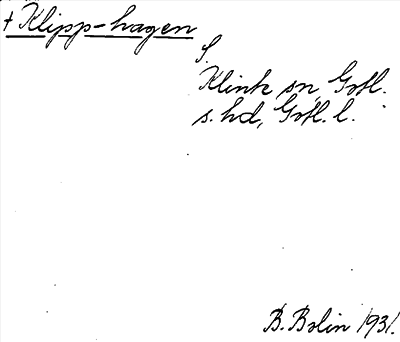 † Klipp-hagen
S.
Klinte sn, Gotl.
s. hd, Gotl. l.
B. Bolin 1931.